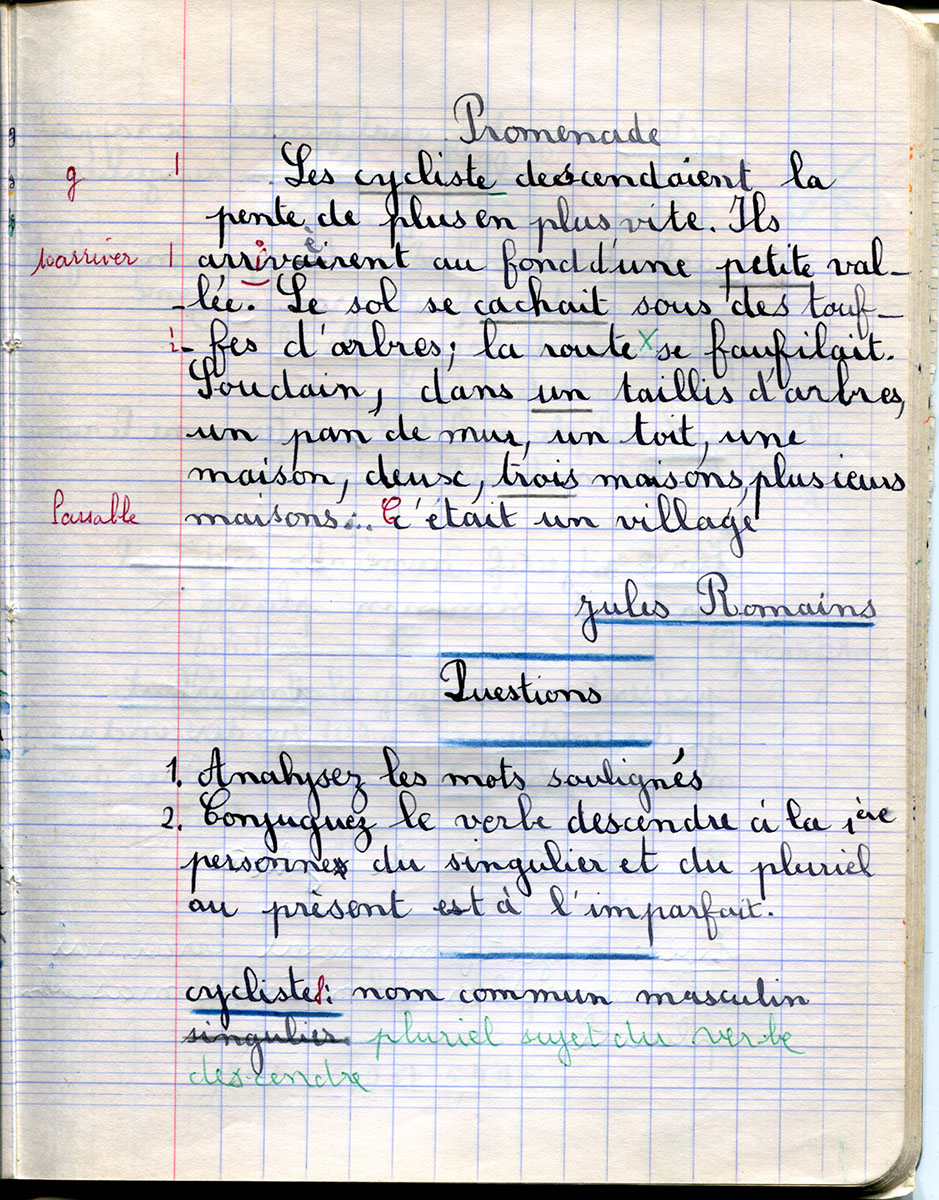 Promenade
g 1 Les cycliste descendaient la
pente de plus en plus vite. Ils
arriver 1 arrivairent au fond d'une petite val-
-lée. Le sol se cachait sous des touf-
- fes d'arbres; la route x se faufilait.
Soudain, dans un taillis d'arbres,
un pan de mur, un toit, une
maison, deux, trois maisons, plusieurs
Passable maisons... C'était un village
jules Romains
Questions
1. Analysez les mots soulignés
2. Conjuguez le verbe descendre à la 1ère
personne du singulier et du pluriel
au présent est à l'imparfait.
cyclistes: nom commun masculin
singulier. pluriel sujet du verbe
descendre